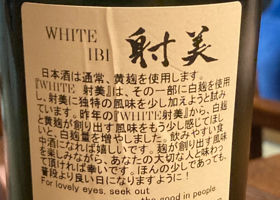 WHITE
IBI 射美
日本酒は通常、黄麹を使用します。
『WHITE 射美』は、その一部に白麹を使用
し、射美に独特の風味を少し加えようと試み
ています。昨年の『WHITE射美』から、白麹
と黄麹が創り出す風味をもう少し感じてほし
いと、白麹量を増やしました。飲みやすい食
中酒になれば嬉しいです。麹が創り出す風味
を楽しみながら、あなたの大切な人と味わっ
て頂ければ幸いです。ほんの少しであっても、
普段より良い日になりますように！
For lovely eyes, seek out
the good in people